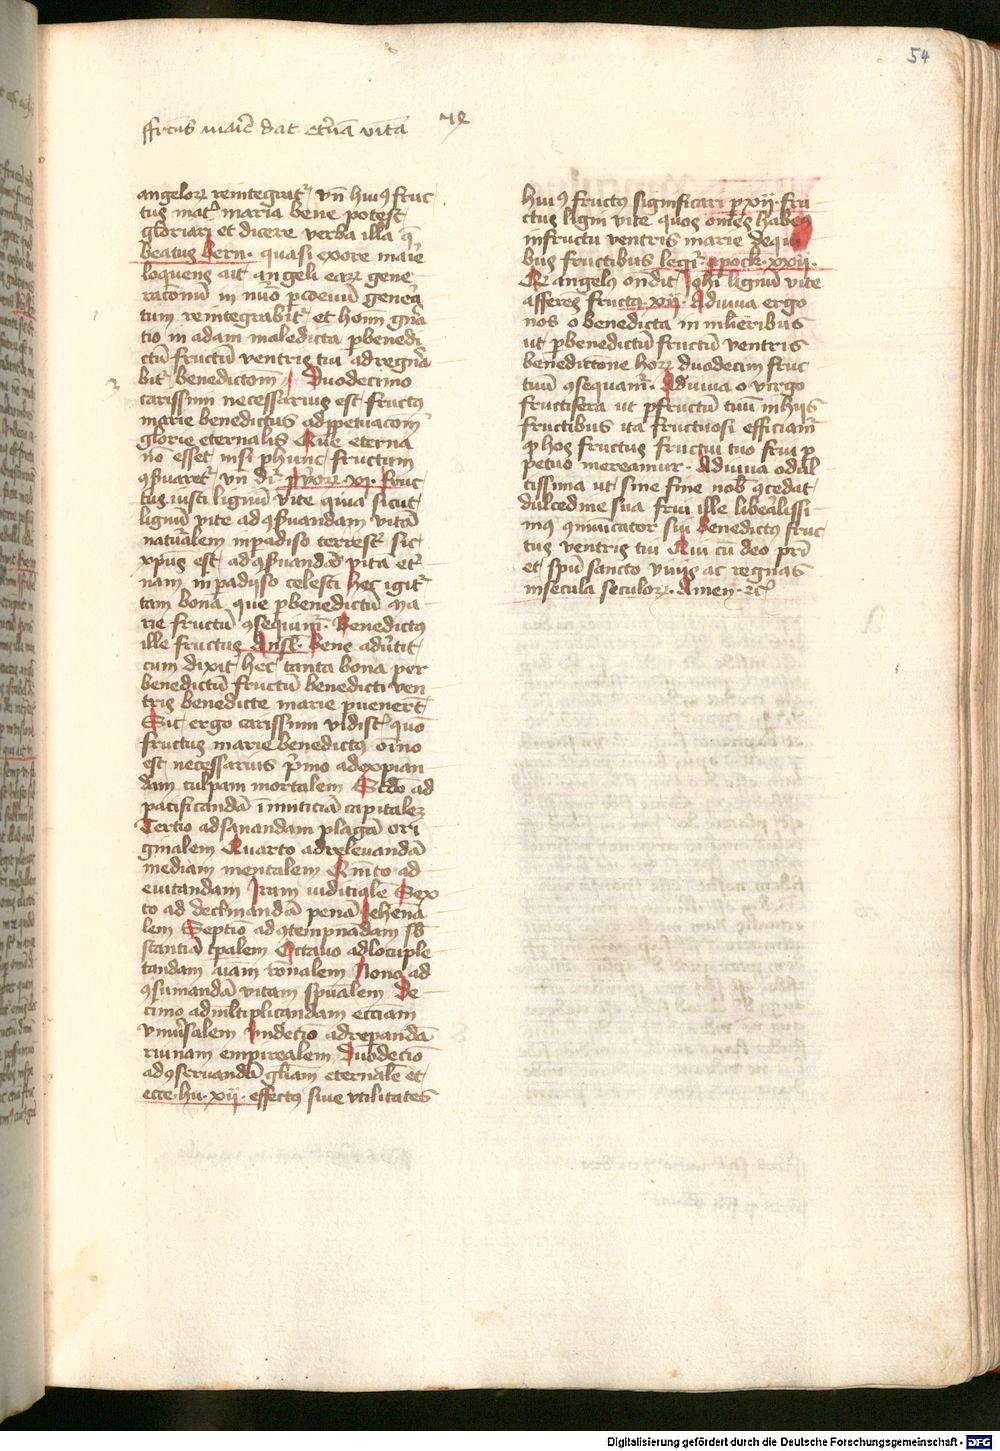 54
ffrctus marie dat etnā vitā
angelorꝝ reintegratᷣ vn̄ huiꝰ fruc
tus matᷣ maria bene potest
gloriari et dicere verba illa q̄
beatus Bern. quasi ex ore marie
loquens ait angeli earꝝ gene
tum reintegrabitᷣ et homī gn̄a
tio in adam maledicta ꝑ benedi
ctū fructū ventris tui ad regna
bitᷣ benedictom̄ Duodecimo
carissimi necessarius est fructꝰ
marie benedictus ad ꝑpetuacom̄
glorie eternalis Que eterna
nō esset nisi ꝑ hunc fructum
ꝯẜuaretᷣ vn̄ dr̄ ꝓuorꝝ xi fruc
tus iusti lignū vite quia sicut
lignū vite ad ꝯẜuandam vitā
naturalem in padiso terrestᷣ sic
xpūs est ad ꝯẜuandā vitā etᷣ
nam in padyso celesti hec igitᷣ
tam bona que ꝑ benedictū ma
rie fructū ꝯsequimᷣ Benedictus
ille fructus Ansl. Bene aduertit
cum dixit hec tanta bona per
benedictū fructū benedicti ven
tris benedicte marie ꝑuenerūt
Sic ergo carissimi vidistᷣ quō
fructus marie benedictꝰ oīno
est necessarius primo ad expian
dam culpam mortalem Scdō ad
pacificandā inimiciciā capitalez
Tercio ad sanandam plagā ori
ginalem Quarto ad releuandā
mediam mentalem Quinto ad
euitandam Iram iudicialē Sex
to ad declinandā penā Iehenā
lem Septīo ad ꝯtempnādam sb̄
stantiā tp̄alem Octauo ad locuple
tandam aīam rōnalem Nono ad
ꝯsumandā vitam spūalem De
cimo ad multiplicandam ecciam
vniuersalem Vndecīo ad repandā
ruinam empirealem Duodecīo
ad ꝯseruandā gliām eternalē et
ecce hii xii effectꝰ siue vtilitates
huiꝰ fructꝰ significari ꝑ xii fru
ctus ligni vite quos om̄es habeꝰ
in fructu ventris marie de qui
bus fructibus legitᷣ Apock. xxii.
Qꝛ angelꝰ ondit Iohī lignū vite
afferēs fructꝰ xii Adiuua ergo
nos o benedicta in mlieribus
ut ꝑ benedictū fructū ventris
benedictione horꝝ duodecim fruc
tuū ꝯsequamᷣ. Adiuua o virgo
fructifera ut ꝑ fructū tuū in hiis
fructibus ita fructuosi efficiamᷣ
ꝙ hos fructus fructui tuo frui ꝑ
petuo mereamur. Adiuua o dul
cissima ut sine fine nob̄ ꝯcedat
dulcedine sua frui ille liberalissi
mꝰ ꝯmunicator sui Benedictꝰ fruc
tus ventris tui Qui cū deo pr̄i
et spū sancto viuis ac regnas
in secula seculorꝝ. Amen. ꝛc̄
Digitalisierung gefördert durch die Deutsche Forschungsgemeinschaft - DFG